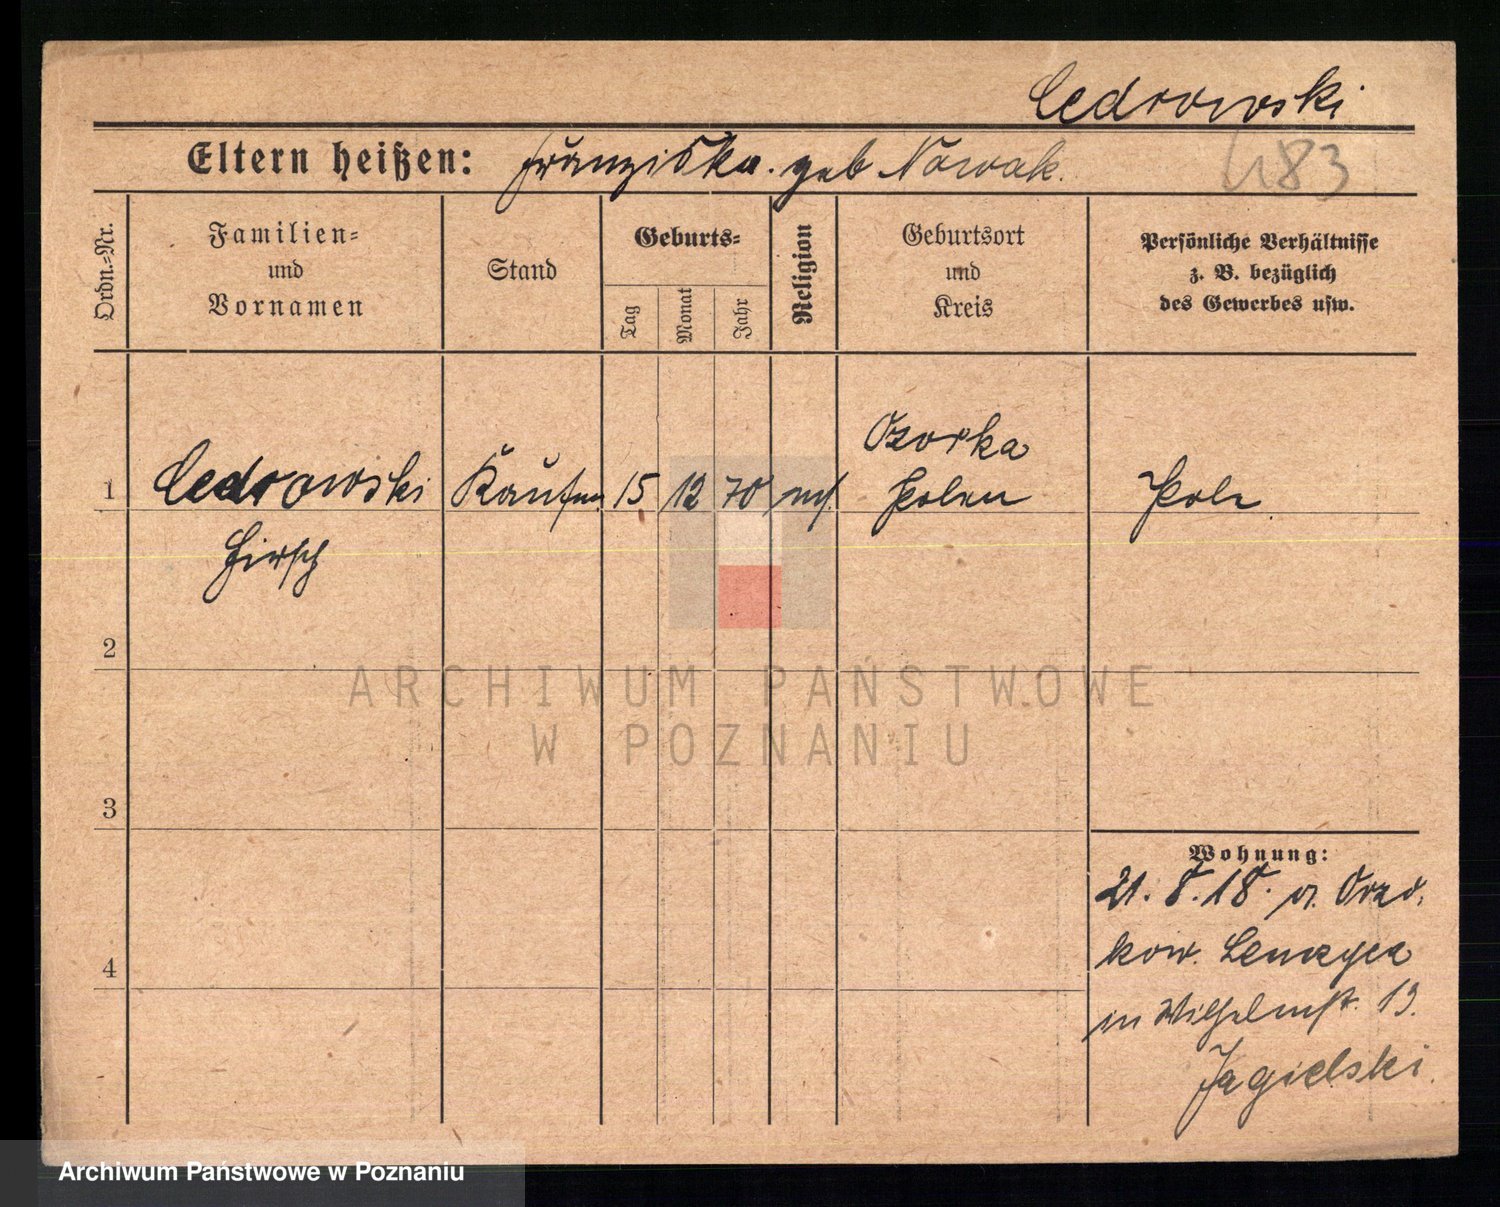 Cedrowski
Eltern heißen: Franziska. geb Nowak.
483
Ordn.-Nr.
Familien-
und
Vornamen
Stand
Geburts-
Tag
Monat
Jahr
Religion
Geburtsort
und
Kreis
Persönliche Verhältnisse
z. B. bezüglich
des Gewerbes usw.
1
Cedrowski
Hirsch
Kaufm
15
12
70
Ozorka
Polen
Pole
2
3
4
Wohnung:
21. 8. 18.
kow.
in Wilhelmst. 13.
Jagielski.
ARCHIWUM PAŃSTWOWE
W POZNANIU
Archiwum Państwowe w Poznaniu